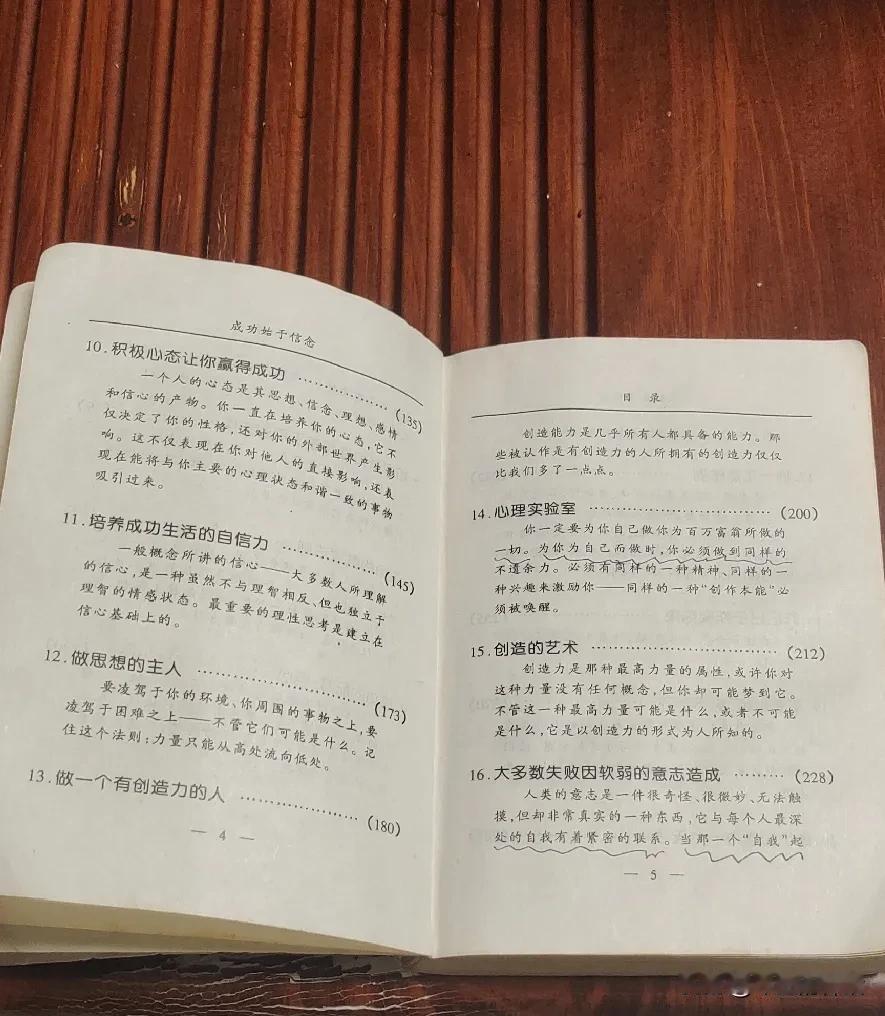 成功始于信念
10.积极心态让你赢得成功 ……………… (135)
一个人的心态是其思想、信念、理想、感情
和信心的产物。你一直在培养你的心态,它不
仅决定了你的性格,还对你的外部世界产生影
响。这不仅表现在你对他人的直接影响,还表
现在能将与你主要的心理状态和谐一致的事物
吸引过来。
11.培养成功生活的自信力 ……………… (145)
一般概念所讲的信心——大多数人所理解
的信心,是一种虽然不与理智相反、但也独立于
理智的情感状态。最重要的理性思考是建立在
信心基础上的。
12.做思想的主人 ……………………… (173)
要凌驾于你的环境、你周围的事物之上,要
凌驾于困难之上——不管它们可能是什么。记
住这个法则:力量只能从高处流向低处。
13.做一个有创造力的人 ……………… (180)
— 4 —
目 录
创造能力是几乎所有人都具备的能力。那
些被认作是有创造力的人所拥有的创造力仅仅
比我们多了一点点。
14.心理实验室 ……………………………… (200)
你一定要为你自己做你为百万富翁所做的
一切。为你为自己而做时,你必须做到同样的
不遗余力。必须有同样的一种精神、同样的一
种兴趣来激励你——同样的一种“创作本能”必
须被唤醒。
15.创造的艺术 ……………………………… (212)
创造力是那种最高力量的属性,或许你对
这种力量没有任何概念,但你却可能梦到它。
不管这一种最高力量可能是什么,或者不可能
是什么,它是以创造力的形式为人所知的。
16.大多数失败因软弱的意志造成 ……… (228)
人类的意志是一件很奇怪、很微妙、无法触
摸,但却非常真实的一种东西,它与每个人最深
处的自我有着紧密的联系。当那一个“自我”起
— 5 —